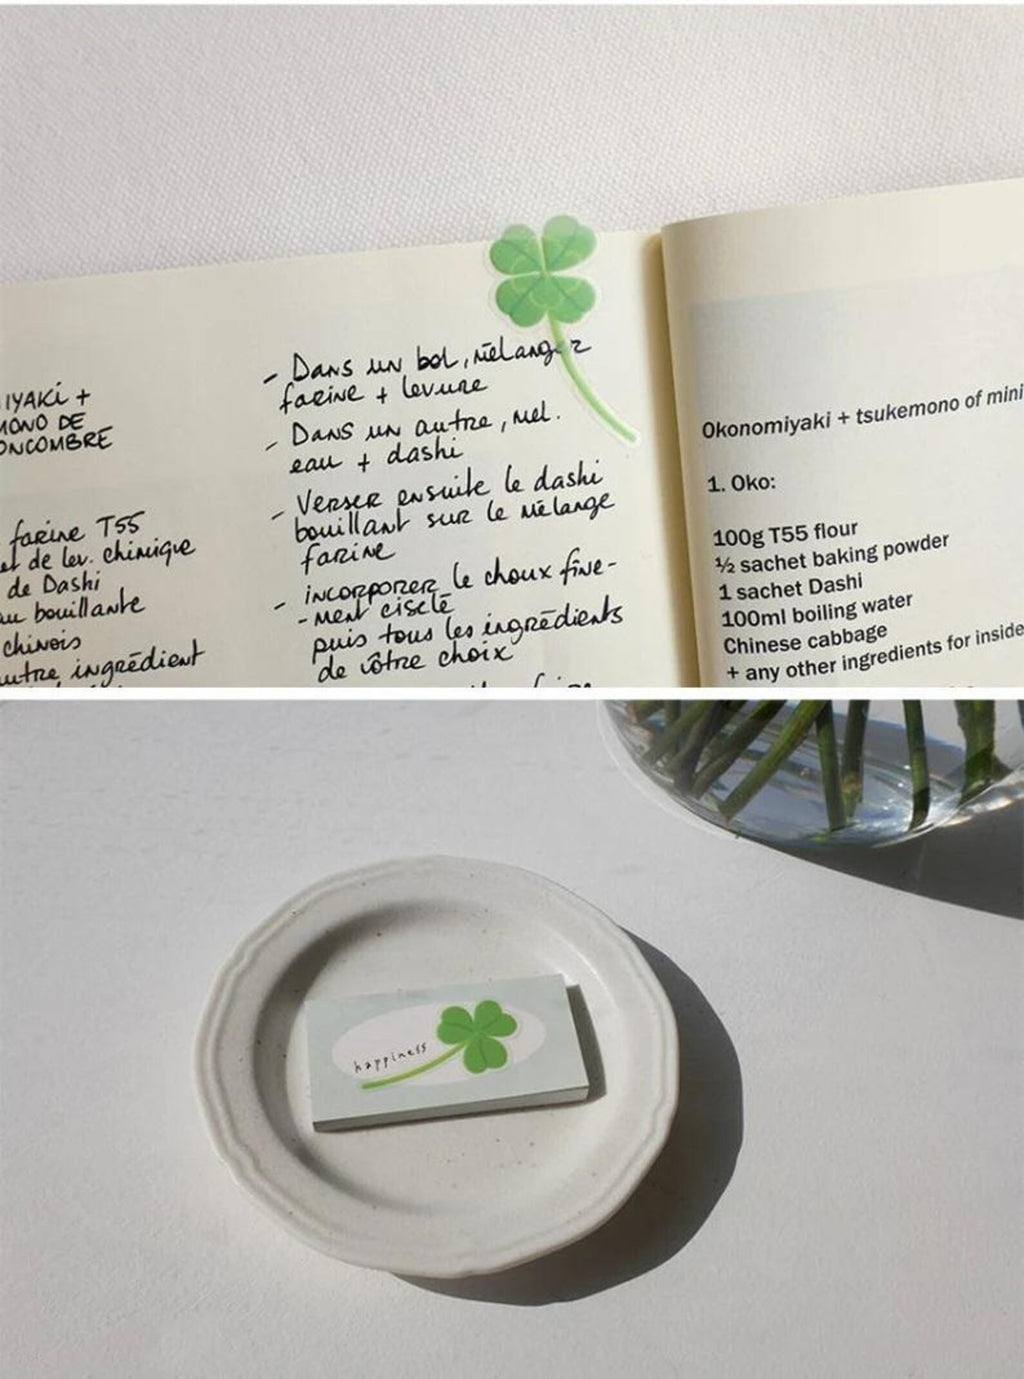 IYAKI +
MONO DE
ONCOMBRE
farine T55
et de lev. chimique
de Dashi
au bouillante
chinois
autre ingrédient
- Dans un bol, mélanger
farine + levure
- Dans un autre, mel.
eau + dashi
- Verser ensuite le dashi
bouillant sur le mélange
farine
- incorporer le choux fine-
- ment ciselé
puis tous les ingrédients
de vôtre choix
Okonomiyaki + tsukemono of mini
1. Oko:
100g T55 flour
½ sachet baking powder
1 sachet Dashi
100ml boiling water
Chinese cabbage
+ any other ingredients for inside
happiness